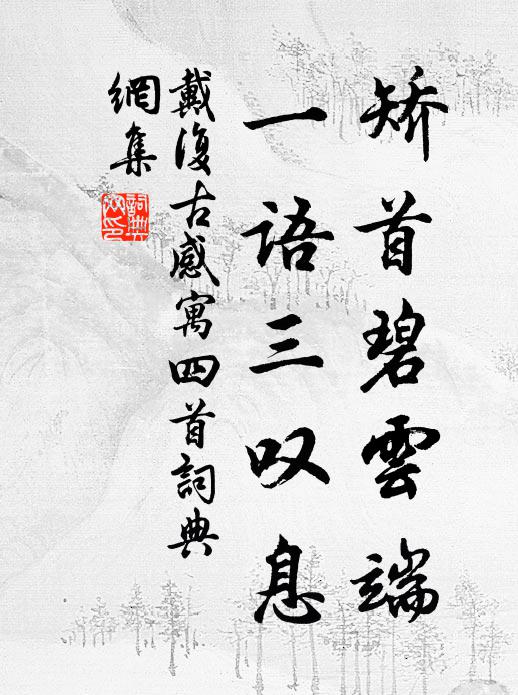 矫首碧雲端
一语三叹息
戴復古感寓四首詞典
網集
詞典